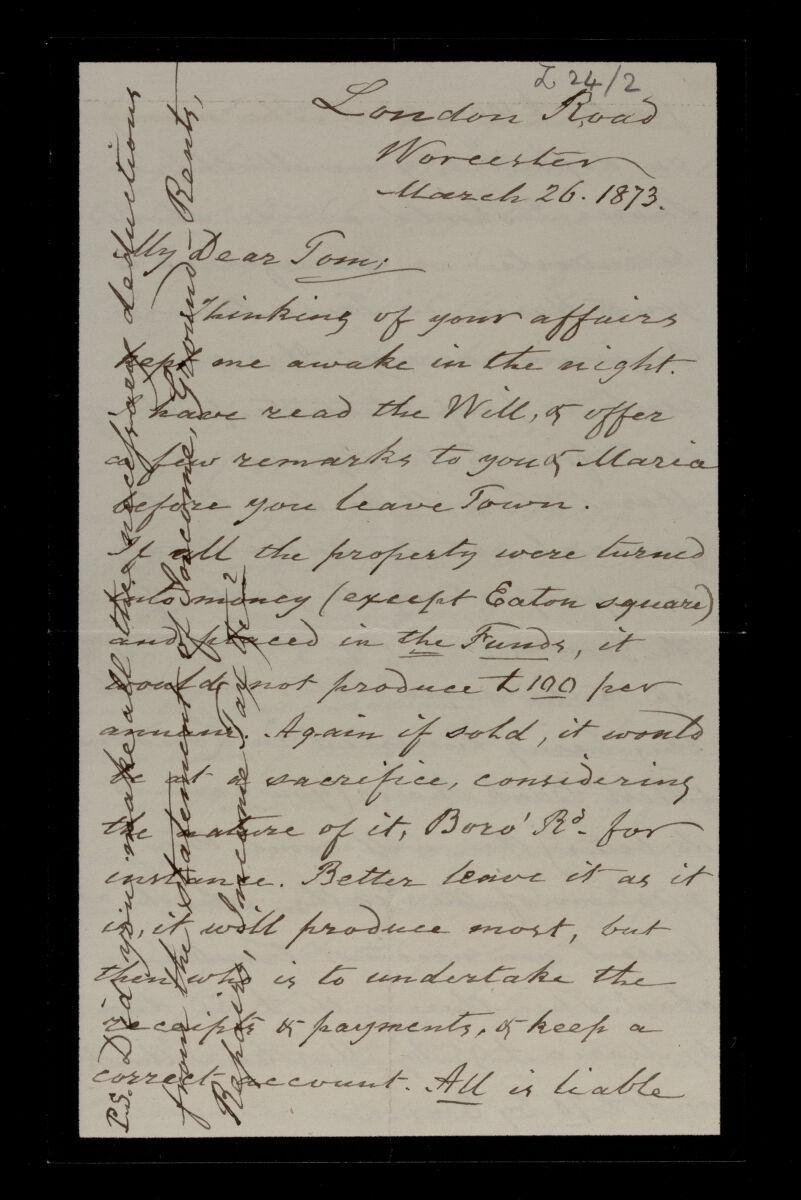 L 24/2
London Road
Worcester
March 26. 1873.
My Dear Tom;
Thinking of your affairs
kept me awake in the night.
I have read the Will, & offer
a few remarks to you & Maria
before you leave Town.
If all the property were turned
into money (except Eaton square)
and placed in the Funds, it
would not produce £100 per
annum. Again if sold, it would
be at a sacrifice, considering
the nature of it, Boro' Rd. for
instance. Better leave it as it
is, it will produce most, but
then who is to undertake the
receipts & payments, & keep a
correct account. All is liable
P.S. Did you make all the necessary deductions
from the statement of Income, Ground-Rents,
Repairs, Income Tax &c?